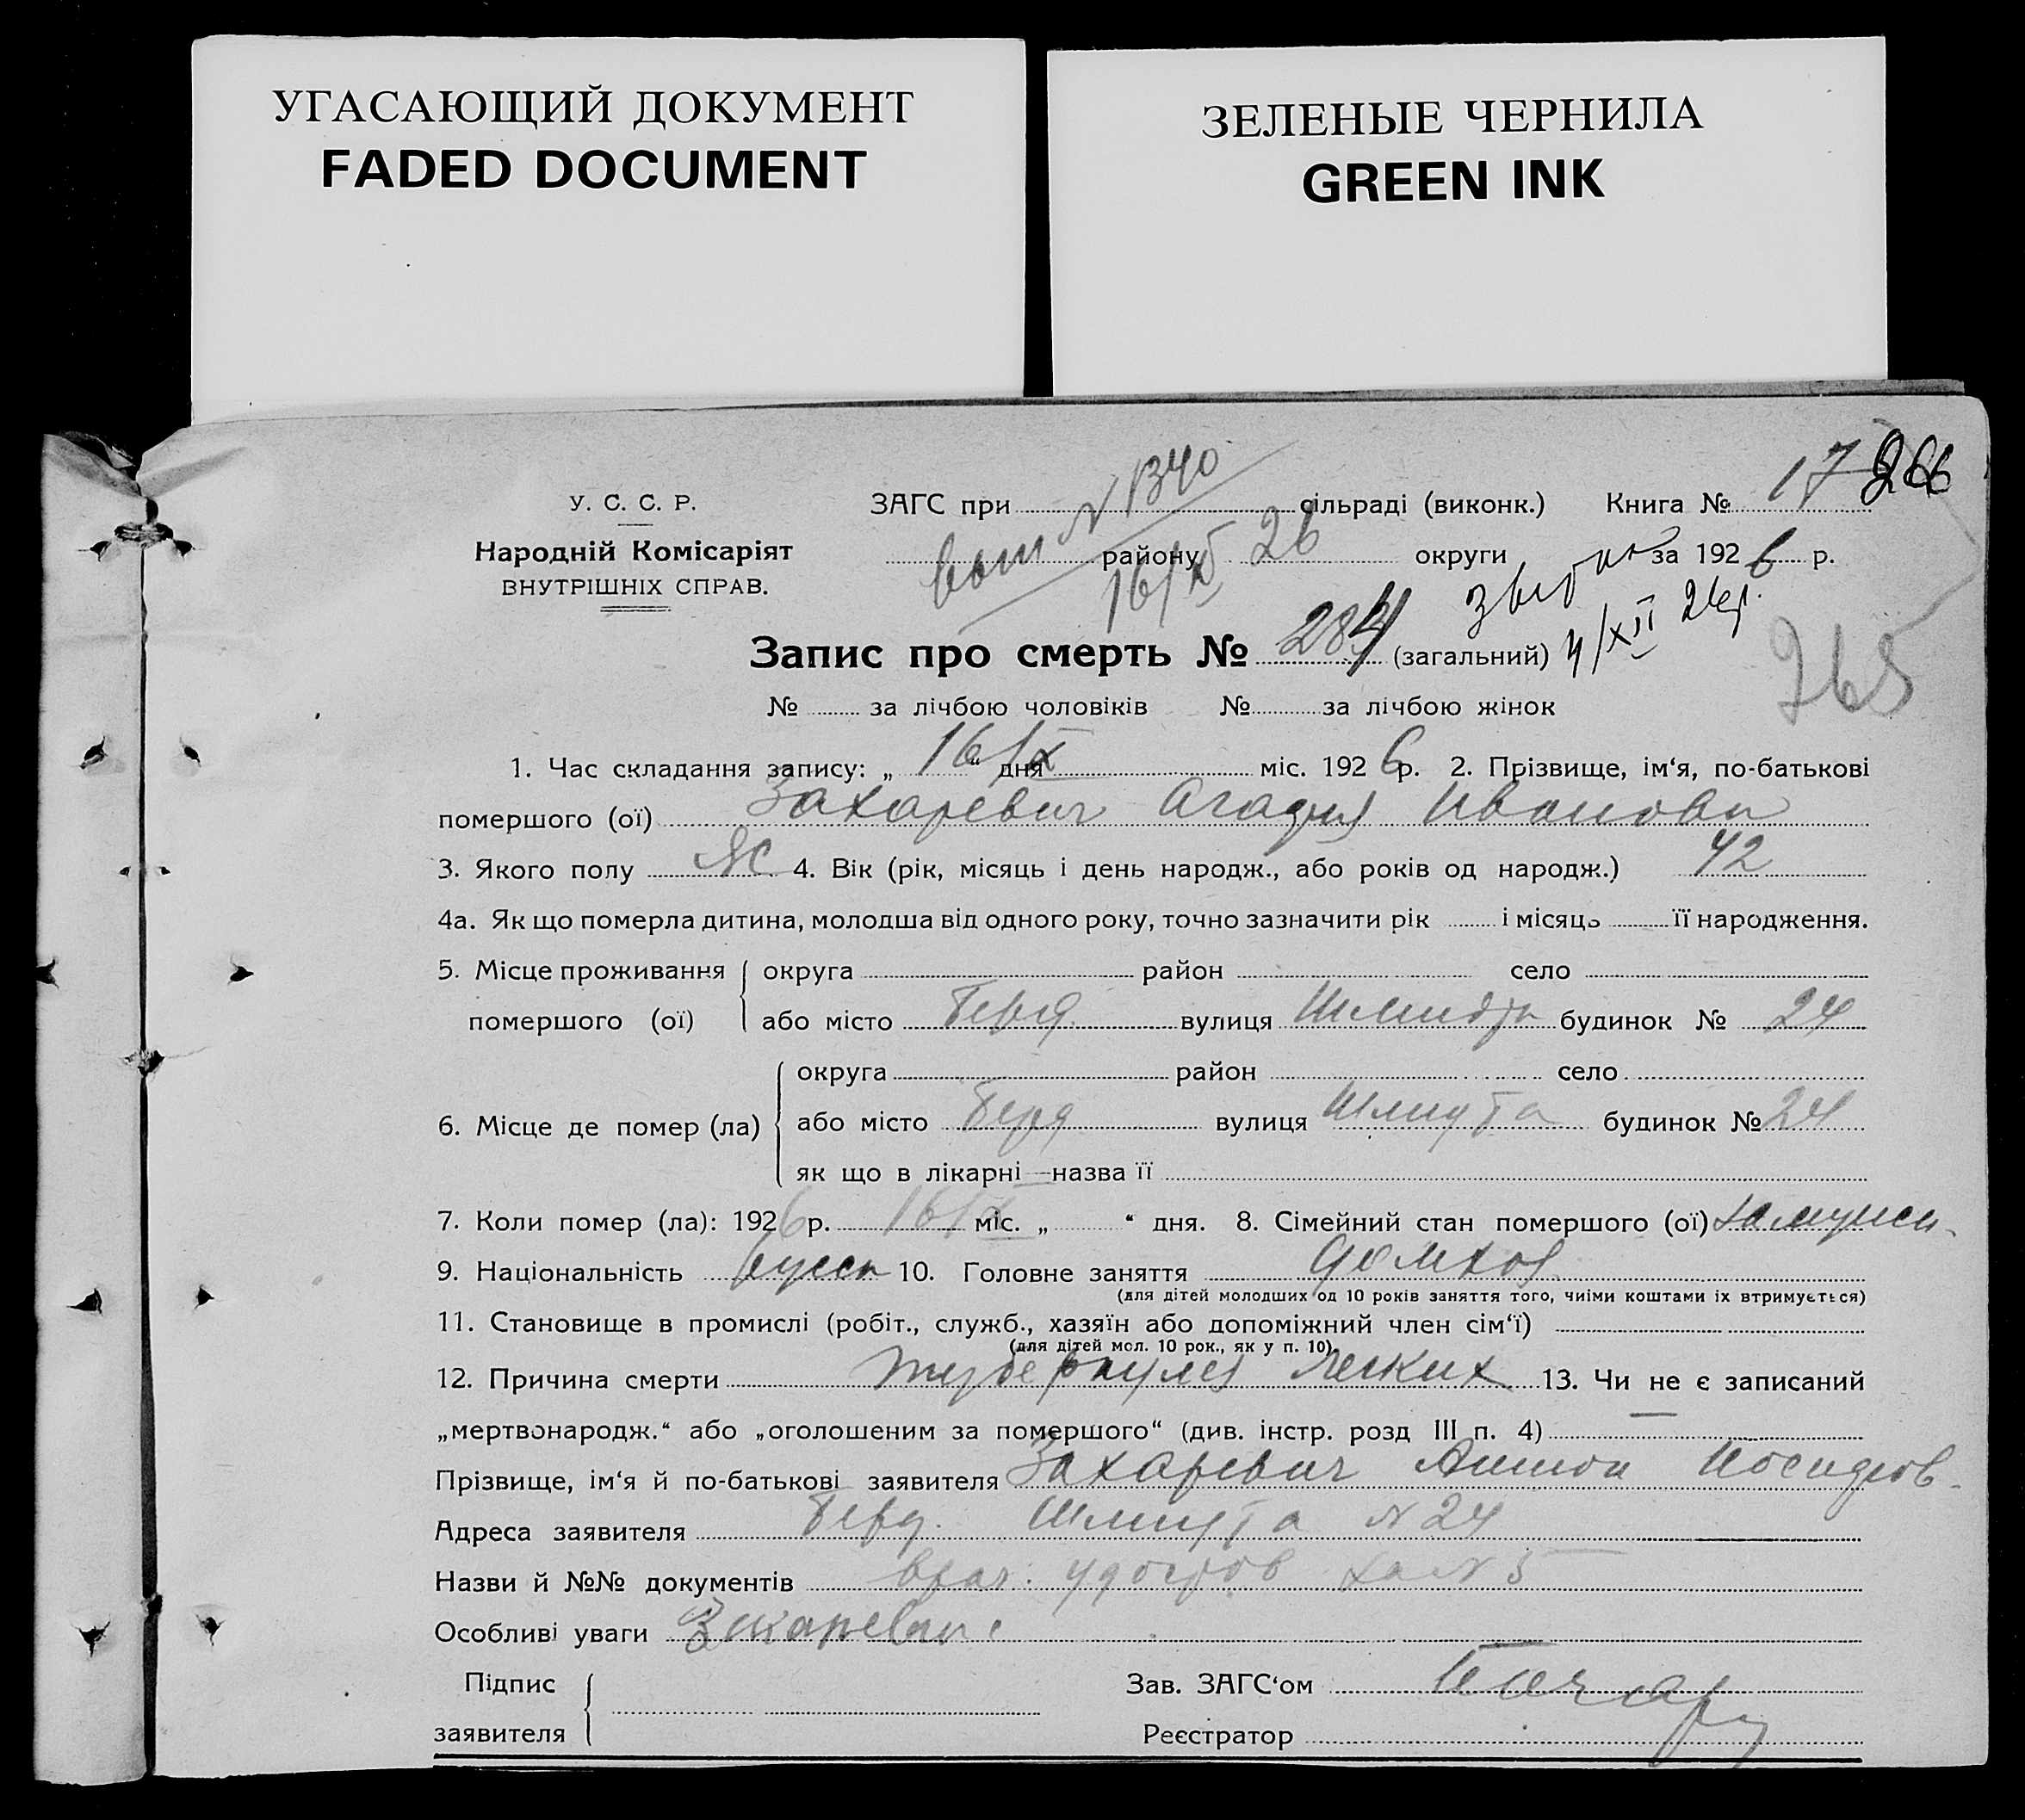 УГАСАЮЩИЙ ДОКУМЕНТ
FADED DOCUMENT
ЗЕЛЕНЫЕ ЧЕРНИЛА
GREEN INK
У. С. С. Р.
Народній Комісаріят
ВНУТРІШНІХ СПРАВ.
ЗАГС при N 1340 сільраді (виконк.) Книга № 17 266
району 26 округи за 1926 р.
Запис про смерть № 284 (загальний) 4/XII 26 р.
265
№ за лічбою чоловіків № за лічбою жінок
1. Час складання запису: „ 16/X “ дня міс. 1926 р. 2. Прізвище, ім‘я, по-батькові
помершого (ої) Захаревич Агафия Иванова
3. Якого полу Ж 4. Вік (рік, місяць і день народж., або років од народж.) 42
4а. Як що померла дитина, молодша від одного року, точно зазначити рік і місяць її народження.
5. Місце проживання округа район село
помершого (ої) або місто Берд. вулиця Шмидта будинок № 24
округа район село
6. Місце де помер (ла) або місто Берд вулиця Шмидта будинок № 24
як що в лікарні—назва її
7. Коли помер (ла): 1926 р. 16/X міс. „ “ дня. 8. Сімейний стан помершого (ої) замужем
9. Національність русск 10. Головне заняття домхоз
(для дітей молодших од 10 років заняття того, чиїми коштами їх втримується)
11. Становище в промислі (робіт., служб., хазяїн або допоміжний член сім‘ї)
(для дітей мол. 10 рок., як у п. 10)
12. Причина смерти туберкулез легких 13. Чи не є записаний
„мертвонародж.“ або „оголошеним за помершого“ (див. інстр. розд III п. 4) —
Прізвище, ім‘я й по-батькові заявителя Захаревич Антон
Адреса заявителя Берд. Шмидта N 24
Назви й №№ документів врач. удостов за N 5
Особливі уваги Захаревич
Підпис
заявителя
Зав. ЗАГС‘ом
Реєстратор